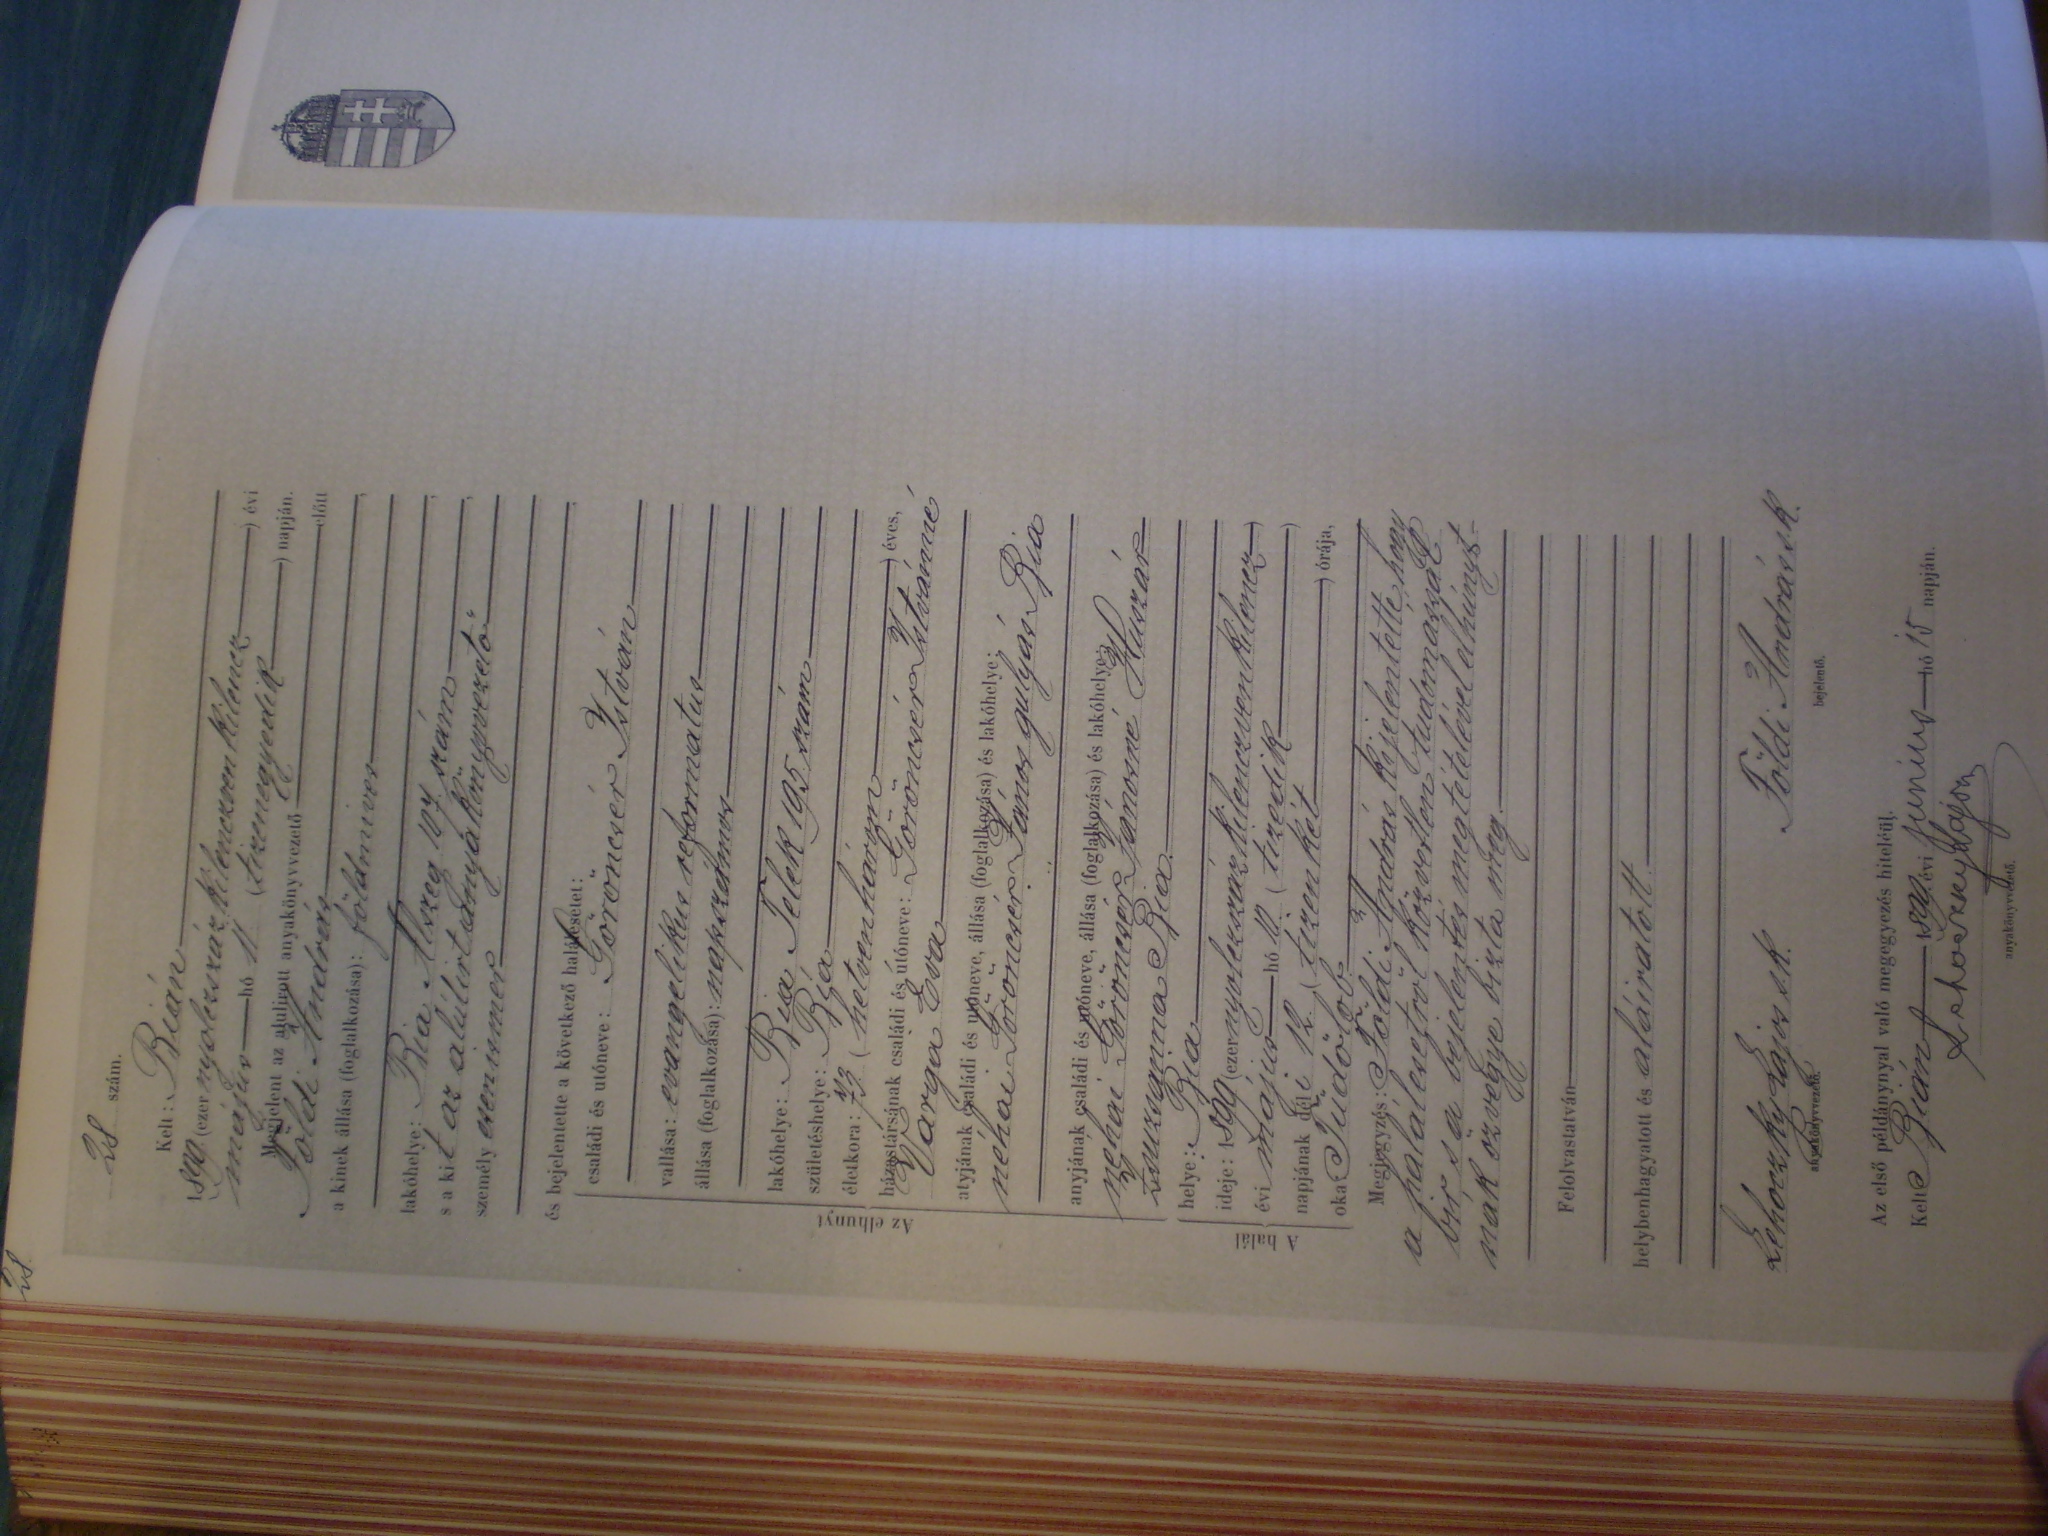 28.
28 szám.
Kelt: Bián
1899 (ezernyolczszáz kilenczven kilencz) évi
május hó 11 (tizenegyedik) napján.
Megjelent az alulirott anyakönyvezető előtt
Földi András
a kinek állása (foglalkozása): földmives,
lakóhelye: Bia Alszeg 107 szám,
s a kit az alulirt anyakönyvvezető,
személyesen ismer
és bejelentette a következő halálesetet:
családi és utóneve: Göröncsér István
vallása: evangelikus reformatus
állása (foglalkozása): napszámos
lakóhelye: Bia Telek 195 szám
születéshelye: Bia
életkora: 73 (hetvenhárom) éves,
házastársának családi és utóneve: Göröncsér Istvánné
Varga Éva
atyjának családi és utóneve, állása (foglalkozása) és lakóhelye:
néhai Göröncsér János gulyás Bia
anyjának családi és utóneve, állása (foglalkozása) és lakóhelye:
néhai Göröncsér Jánosné Huszár
Zsuzsanna Bia.
helye: Bia
ideje: 1899 (ezernyolczszáz kilenczven kilencz)
évi május hó 10 (tizedik)
napjának dél i 12 (tizenkét) órája,
oka Tüdőlob
Az elhunyt
A halál
Megjegyzés: Földi András kijelentette, hogy
a halálesetről közvetlen tudomással
bir, s a bejelentés megtételével elhúnyt-
nak özvegye bizta meg.
Felolvastatván
helybenhagyatott és aláiratott.
Lehoczky Lajos s.k. Földi András s.k.
anyakönyvvezető. bejelentő.
Az első példánynyal való megegyezés hiteléül.
Kelt Bián 1899. évi junius hó 15 napján.
Lehoczky Lajos
anyakönyvvezető.